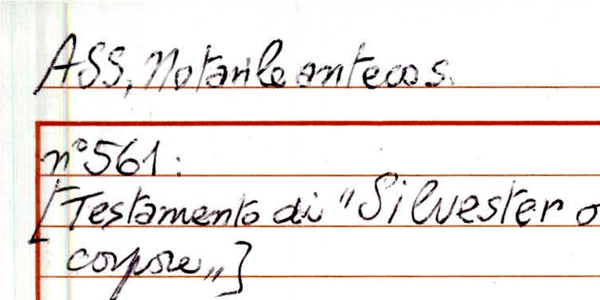 ASS, Notarile antecos.
n° 561:
[Testamento di "Silvester
corpore"]